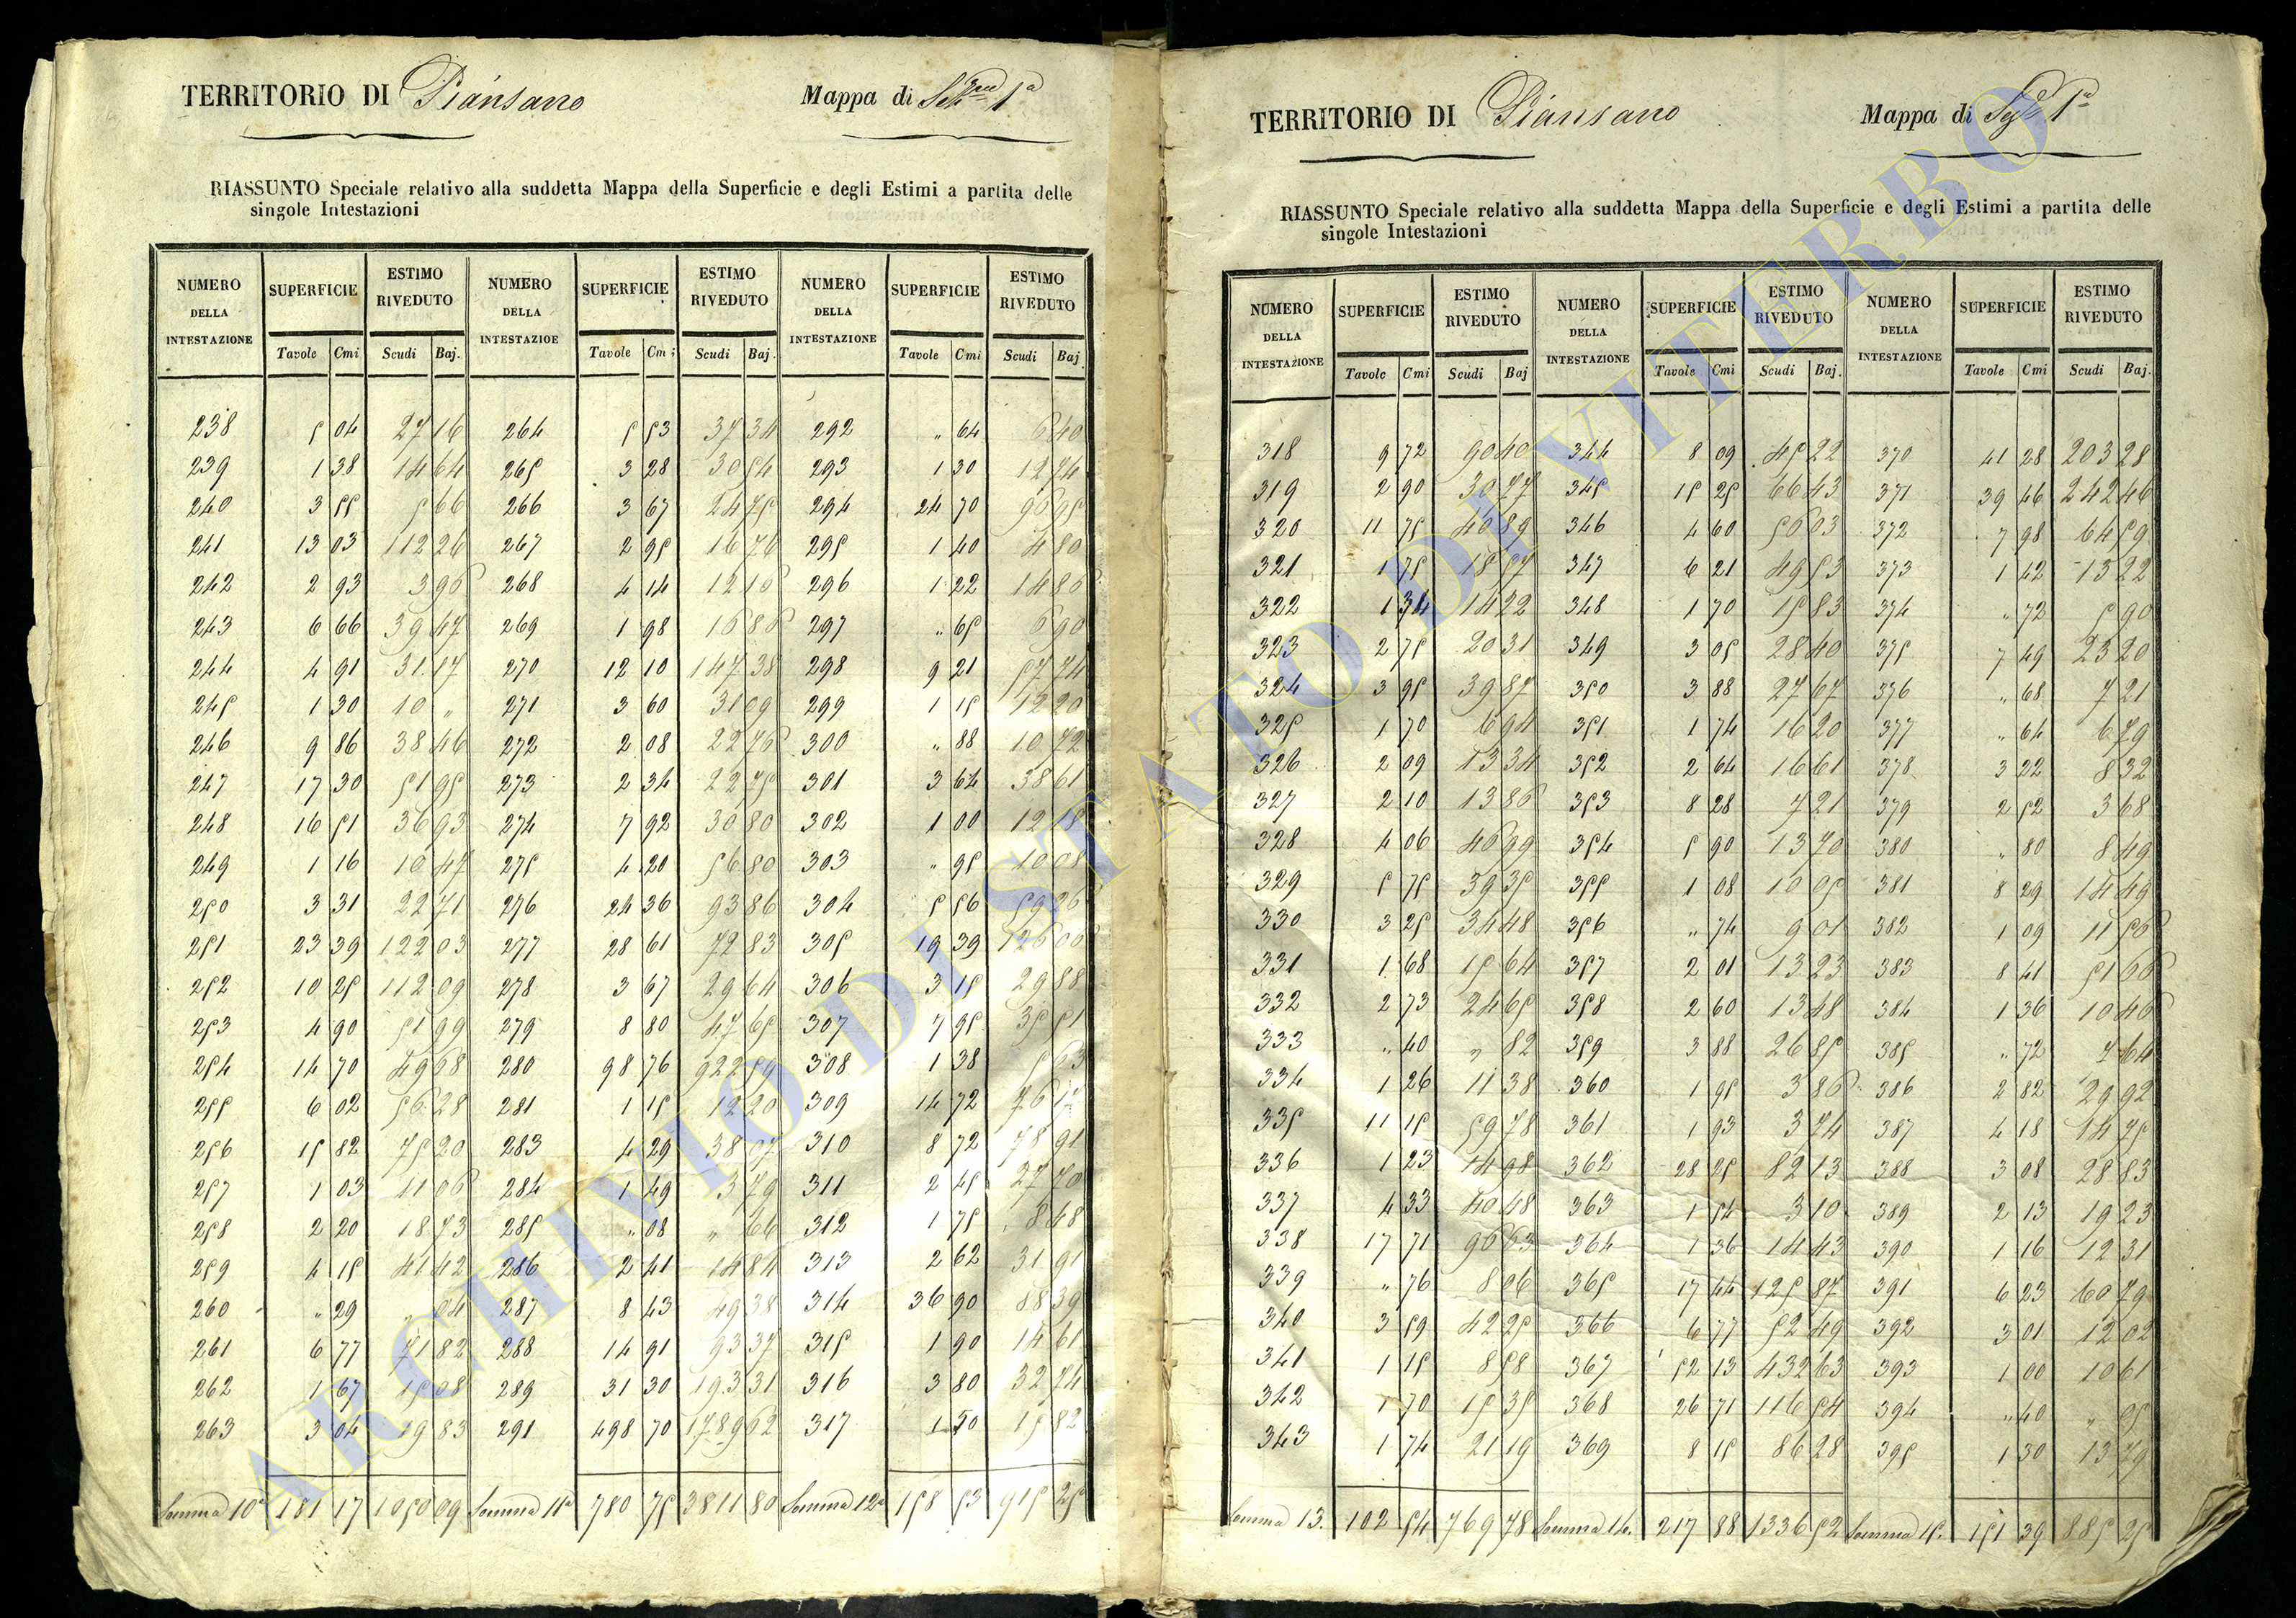 TERRITORIO DI Piansano Mappa di Sez.ne 1a
RIASSUNTO Speciale relativo alla suddetta Mappa della Superficie e degli Estimi a partita delle
singole Intestazioni
NUMERO DELLA INTESTAZIONE SUPERFICIE ESTIMO RIVEDUTO NUMERO DELLA INTESTAZIOE SUPERFICIE ESTIMO RIVEDUTO NUMERO DELLA INTESTAZIONE SUPERFICIE ESTIMO RIVEDUTO
Tavole Cmi Scudi Baj. Tavole Cmi Scudi Baj. Tavole Cmi Scudi Baj.
238 5 04 27 16 264 5 53 37 34 292 " 64 6 40
239 1 38 14 64 265 3 28 30 54 293 1 30 12 74
240 3 55 5 66 266 3 67 24 75 294 24 70 96 95
241 13 03 112 26 267 2 95 16 76 295 1 40 4 80
242 2 93 3 96 268 4 14 12 16 296 1 22 14 86
243 6 66 39 47 269 1 98 16 88 297 " 65 6 90
244 4 91 31 17 270 12 10 147 38 298 9 21 57 74
245 1 30 10 " 271 3 60 31 09 299 1 15 12 20
246 9 86 38 46 272 2 08 22 76 300 " 88 10 72
247 17 30 51 95 273 2 34 22 75 301 3 64 38 61
248 16 51 36 93 274 7 92 30 80 302 1 00 12 18
249 1 16 10 47 275 4 20 56 80 303 " 95 10 08
250 3 31 22 71 276 24 36 93 86 304 5 56 59 26
251 23 39 122 03 277 28 61 72 83 305 19 39 126 06
252 10 25 112 09 278 3 67 29 64 306 3 15 29 88
253 4 90 51 99 279 8 80 47 65 307 7 95 35 51
254 14 70 49 68 280 98 76 922 59 308 1 38 5 63
255 6 02 56 28 281 1 15 12 20 309 14 72 76
256 15 82 75 20 283 4 29 38 07 310 8 72 78 91
257 1 03 11 06 284 1 49 3 79 311 2 45 27 70
258 2 20 18 73 285 " 08 " 66 312 1 75 8 48
259 4 15 41 42 286 2 41 14 84 313 2 62 31 91
260 " 29 " 04 287 8 43 49 38 314 36 90 88 39
261 6 77 71 82 288 14 91 93 37 315 1 90 14 61
262 1 67 15 08 289 31 30 193 31 316 3 80 32 74
263 3 04 19 83 291 498 70 1789 62 317 1 50 15 82
Somma 10a 181 17 1050 09 Somma 11a 780 75 3811 80 Somma 12a 158 53 915 25
TERRITORIO DI Piansano Mappa di Sez.e 1a
RIASSUNTO Speciale relativo alla suddetta Mappa della Superficie e degli Estimi a partita delle
singole Intestazioni
NUMERO DELLA INTESTAZIONE SUPERFICIE ESTIMO RIVEDUTO NUMERO DELLA INTESTAZIONE SUPERFICIE ESTIMO RIVEDUTO NUMERO DELLA INTESTAZIONE SUPERFICIE ESTIMO RIVEDUTO
Tavole Cmi Scudi Baj Tavole Cmi Scudi Baj. Tavole Cmi Scudi Baj.
318 9 72 90 40 344 8 09 45 22 370 41 28 203 28
319 2 90 30 77 345 15 25 66 43 371 39 46 242 46
320 11 75 46 89 346 4 60 56 03 372 7 98 64 59
321 1 75 18 57 347 6 21 49 53 373 1 42 13 22
322 1 34 14 22 348 1 70 15 83 374 " 72 5 90
323 2 75 20 31 349 3 05 28 40 375 7 49 23 20
324 3 95 39 87 350 3 88 27 67 376 " 68 7 21
325 1 70 6 94 351 1 74 16 20 377 " 64 6 79
326 2 09 13 34 352 2 64 16 61 378 3 22 8 32
327 2 10 13 86 353 8 28 7 21 379 2 52 3 68
328 4 06 46 99 354 5 90 13 70 380 " 80 8 49
329 5 75 39 35 355 1 08 10 05 381 8 29 14 49
330 3 25 34 48 356 " 74 9 01 382 1 09 11 56
331 1 68 15 64 357 2 01 13 23 383 8 41 51 66
332 2 73 24 65 358 2 60 13 48 384 1 36 10 46
333 " 40 " 82 359 3 88 26 85 385 " 72 7 64
334 1 26 11 38 360 1 95 3 86 386 2 82 29 92
335 11 15 59 78 361 1 93 3 74 387 4 18 14 75
336 1 23 14 98 362 28 25 82 13 388 3 08 28 83
337 4 33 40 48 363 1 54 3 10 389 2 13 19 23
338 17 71 96 63 364 1 36 14 43 390 1 16 12 31
339 " 76 8 06 365 17 44 125 87 391 6 23 60 79
340 3 59 42 25 366 6 77 52 49 392 3 01 12 02
341 1 15 8 58 367 52 13 432 63 393 1 00 10 61
342 1 70 15 35 368 26 71 116 54 394 " 40 " 95
343 1 74 21 19 369 8 15 86 28 395 1 30 13 79
Somma 13. 102 54 769 78 Somma 14. 217 88 1336 52 Somma 15. 151 39 885 25
ARCHIVIO DI STATO DI VITERBO